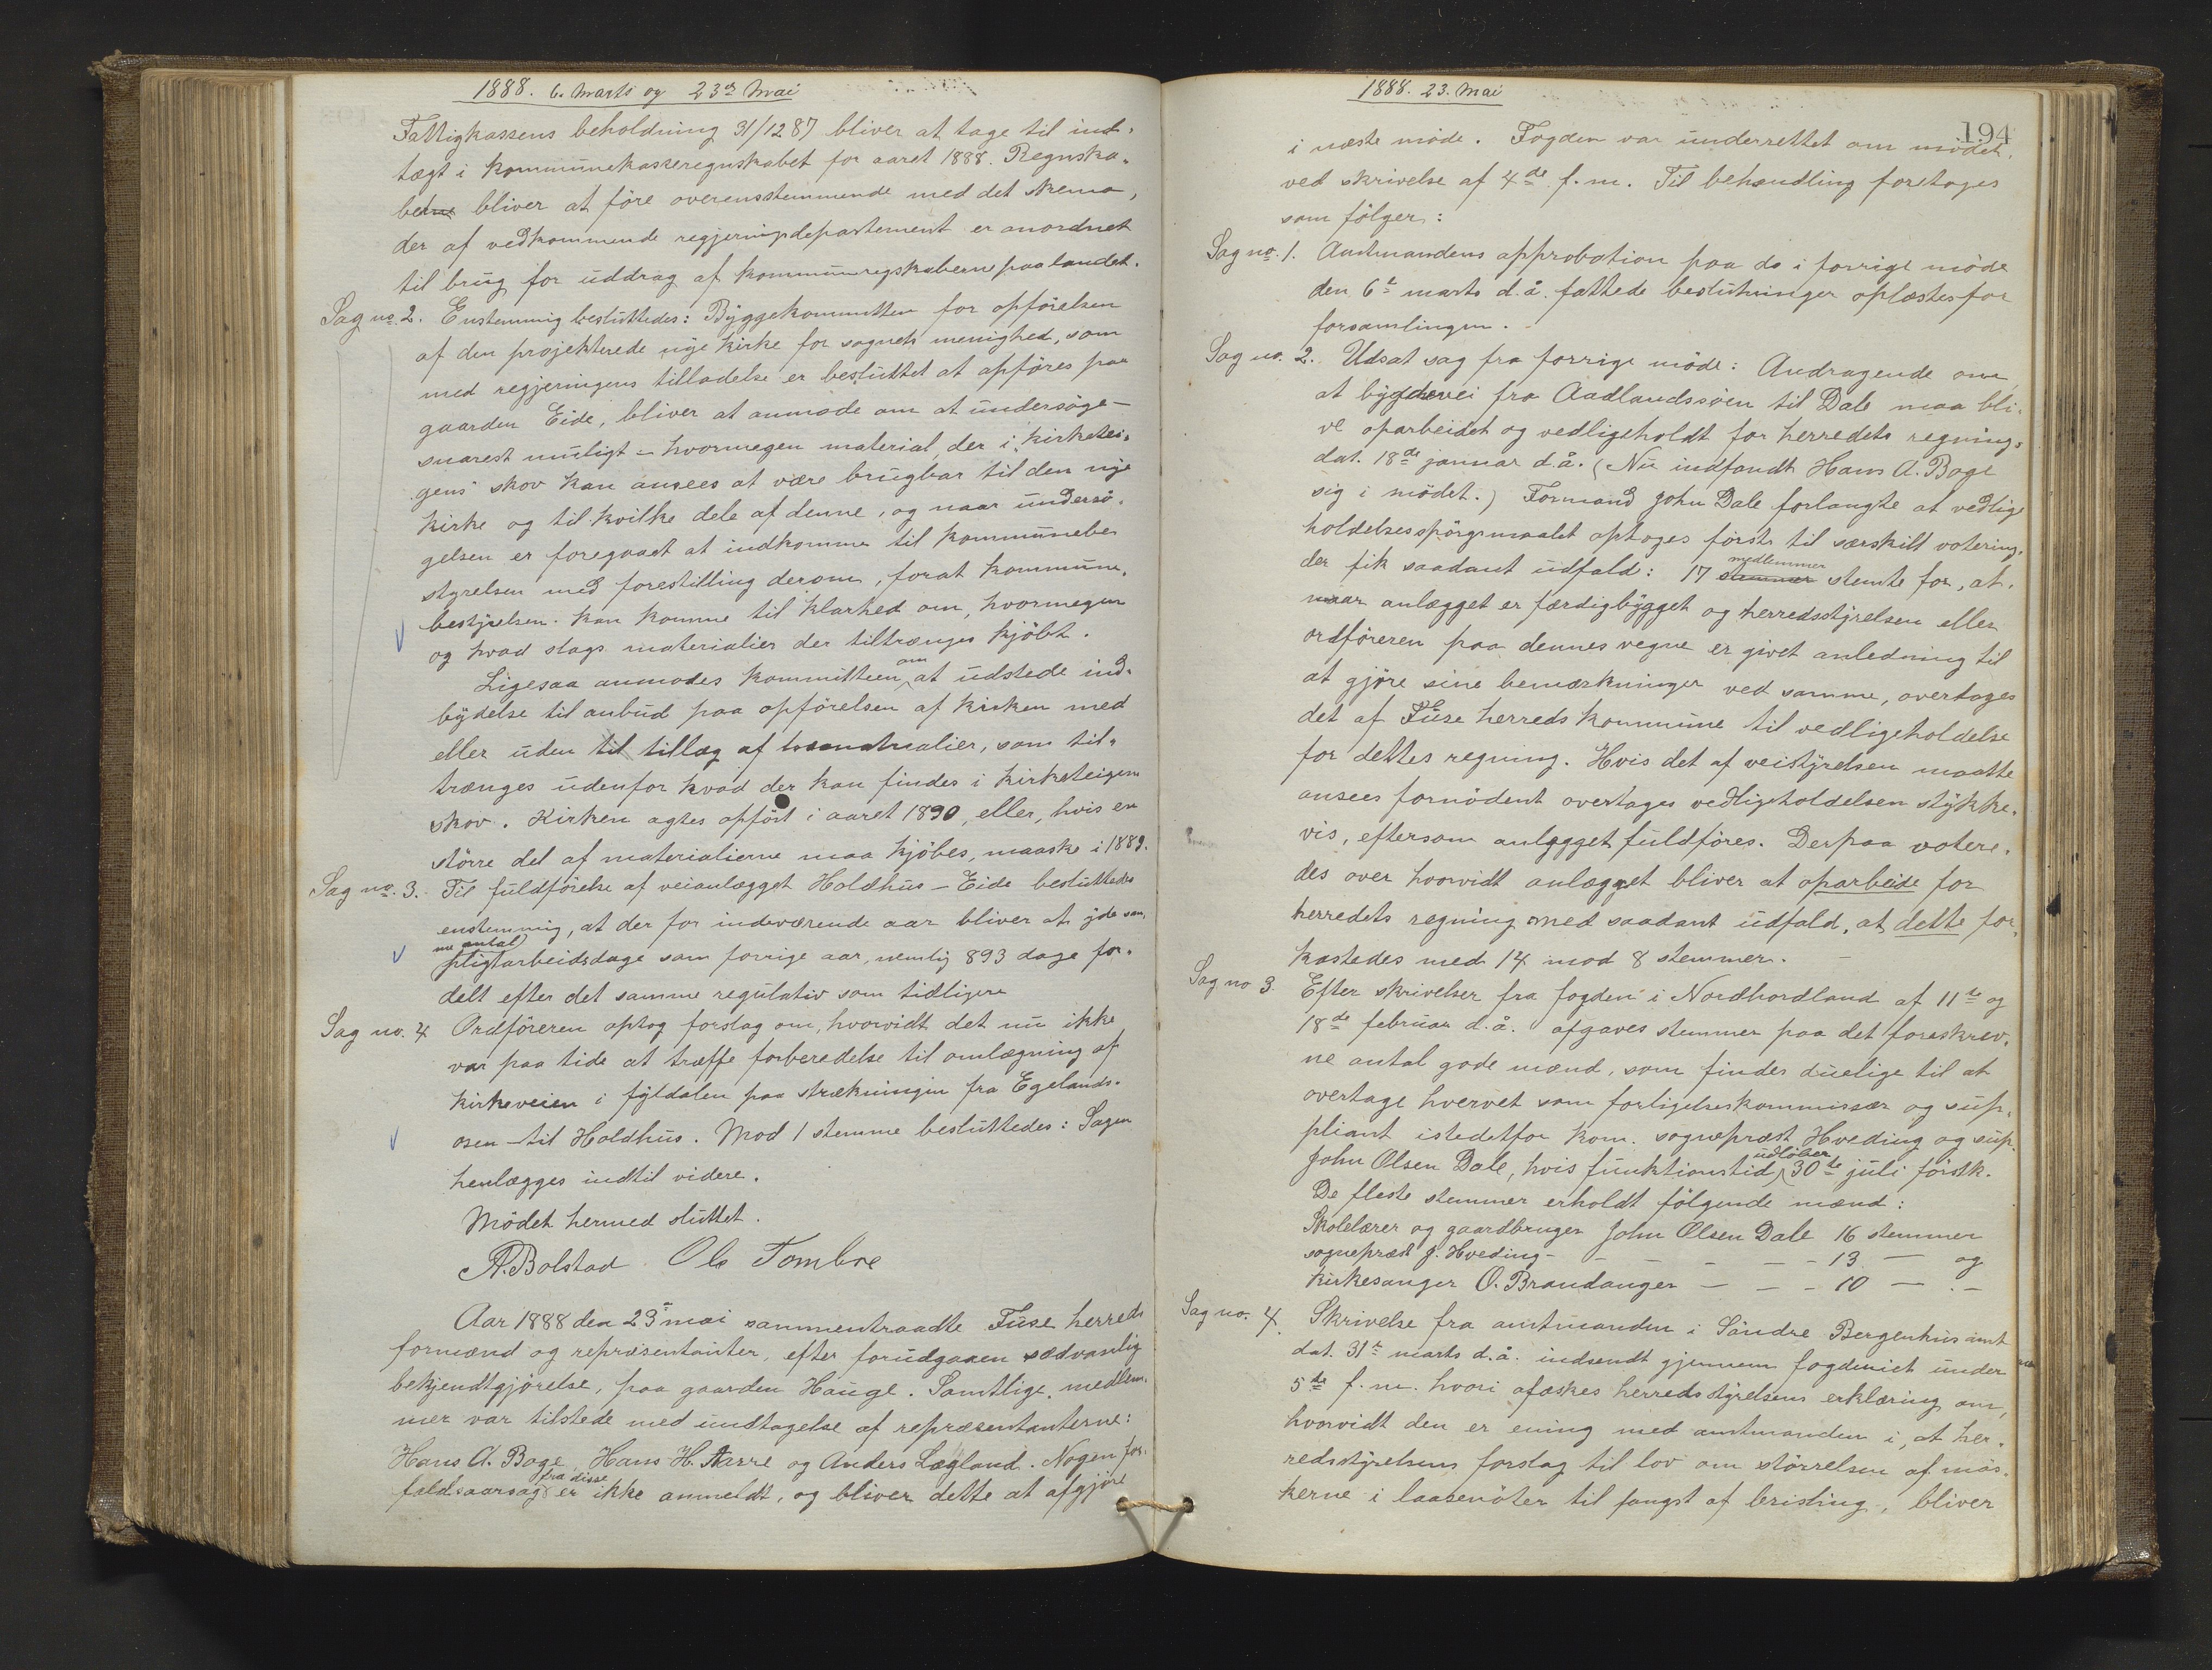 1888. 6. Marts og 23de Mai
Fattigkassens beholdning 31/12 87 bliver at tage til ind-
tægt i kommunekasseregnskabet for aaret 1888. Regnska-
bet bliver at føre overensstemmende med det skema,
der af vedkommende regjeringsdepartement er anordnet
til brug for uddrag af kommuneregskaberne paa landet.
Sag no. 2. Enstemmig besluttedes: Byggekommitten for opførelsen
af den projekterede nye kirke for sognets menighed, som
med regjeringens tilladelse er besluttet at opføres paa
gaarden Eide, bliver at anmode om at undersøge -
snarest muligt - hvormegen material, der i kirketei-
gens skov kan ansees at være brugbar til den nye
kirke og til hvilke dele af denne, og naar undersø-
gelsen er foregaaet at indkomme til kommunebe-
styrelsen med forestilling derom, forat kommune-
bestyrelsen kan komme til klarhed om, hvormegen
og hvad slags materialier der tiltrænges kjøbt.
Ligesaa anmodes kommitteen om at udstede ind-
bydelse til anbud paa opførelsen af kirken med
eller uden til tillæg af materialier, som til-
trænges udenfor hvad der kan findes i kirketeigens
skov. Kirken agtes opført i aaret 1890, eller, hvis en
større del af materialierne maa kjøbes, maaske i 1889.
Sag no. 3. Til fuldførelse af veianlægget Holdhus - Eide besluttedes
enstemmig, at der for indeværende aar bliver at yde sam-
me antal
pligtarbeidsdage som forrige aar, nemlig 893 dage for-
delt efter det samme regulativ som tidligere
Sag no. 4 Ordføreren optog forslag om, hvorvidt det nu ikke
var paa tide at træffe forberedelse til omlægning af
kirkeveien i fyldalen paa strækningen fra Egelands-
osen - til Holdhus. Mod 1 stemme besluttedes: Sagen
henlægges indtil videre.
Mødet hermed sluttet.
A. Bolstad Ole Tombre
Aar 1888 den 23de mai sammentraadte Fuse herreds
formænd og repræsentanter, efter forudgaaen sædvanlig
bekjendtgjørelse, paa gaarden Hauge. Samtlige medlem-
mer var tilstede med undtagelse af repræsentanterne:
Hans A. Boge, Hans H. Aarre og Anders Lægland. Nogen for-
fra disse
faldsaarsag er ikke anmeldt, og bliver dette at afgjøre
1888. 23. Mai
194
i næste møde. Fogden var underrettet om mødet,
ved skrivelse af 4de f.m. Til behandling foretoges
som følger:
Sag no. 1. Amtmandens approbation paa de i forrige møde
den 6te marts d.å. fattede beslutninger oplæstes for
forsamlingen.
Sag no. 2. Udsat sag fra forrige møde: Andragende om,
at bygdevei fra Aadlandssøen til Dale maa bli-
ve oparbeidet og vedligeholdt for herredets regning,
dat. 18de januar d.å. (Nu indfandt Hans A. Boge
sig i mødet.) Formand John Dale forlangte at vedlige
holdelsesspørgsmaalet optoges først til særskilt votering,
medlemmer
der fik saadant udfald: 17 stemmer stemte for, at,
naar anlægget er færdigbygget og herredsstyrelsen eller
ordføreren paa dennes vegne er givet anledning til
at gjøre sine bemærkninger ved samme, overtages
det af Fuse herreds kommune til vedligeholdelse
for dettes regning. Hvis det af veistyrelsen maatte
ansees fornødent overtages vedligeholdelsen stykke-
vis, eftersom anlægget fuldføres. Derpaa votere-
des over hvorvidt anlægget bliver at oparbeide for
herredets regning med saadant udfald, at dette for-
kastedes med 14 mod 8 stemmer.
Sag no 3. Efter skrivelser fra fogden i Nordhordland af 11te og
18de februar d.å. afgaves stemmer paa det foreskrev-
ne antal gode mænd, som findes duelige til at
overtage hvervet som forligelseskommissær og sup-
pliant istedetfor kom. sognepræst Hveding og sup.
udløber
John Olsen Dale, hvis funktionstid 30te juli førstk.
De fleste stemmer erholdt følgende mænd:
Skolelærer og gaardbruger John Olsen Dale 16 stemmer
sognepræst J. Hveding - - - - - 13 - og
kirkesanger O. Brandanger - - - 10 - . -
Sag no. 4. Skrivelse fra amtmanden i Søndre Bergenhus amt
dat. 31te marts d.å. indsendt gjennem fogderiet under
5te f.m. hvori afæskes herredsstyrelsens erklæring om,
hvorvidt den er enig med amtmanden i, at her-
redsstyrelsens forslag til lov om størrelsen af mas-
kerne i laasenøter til fangst af brisling, bliver